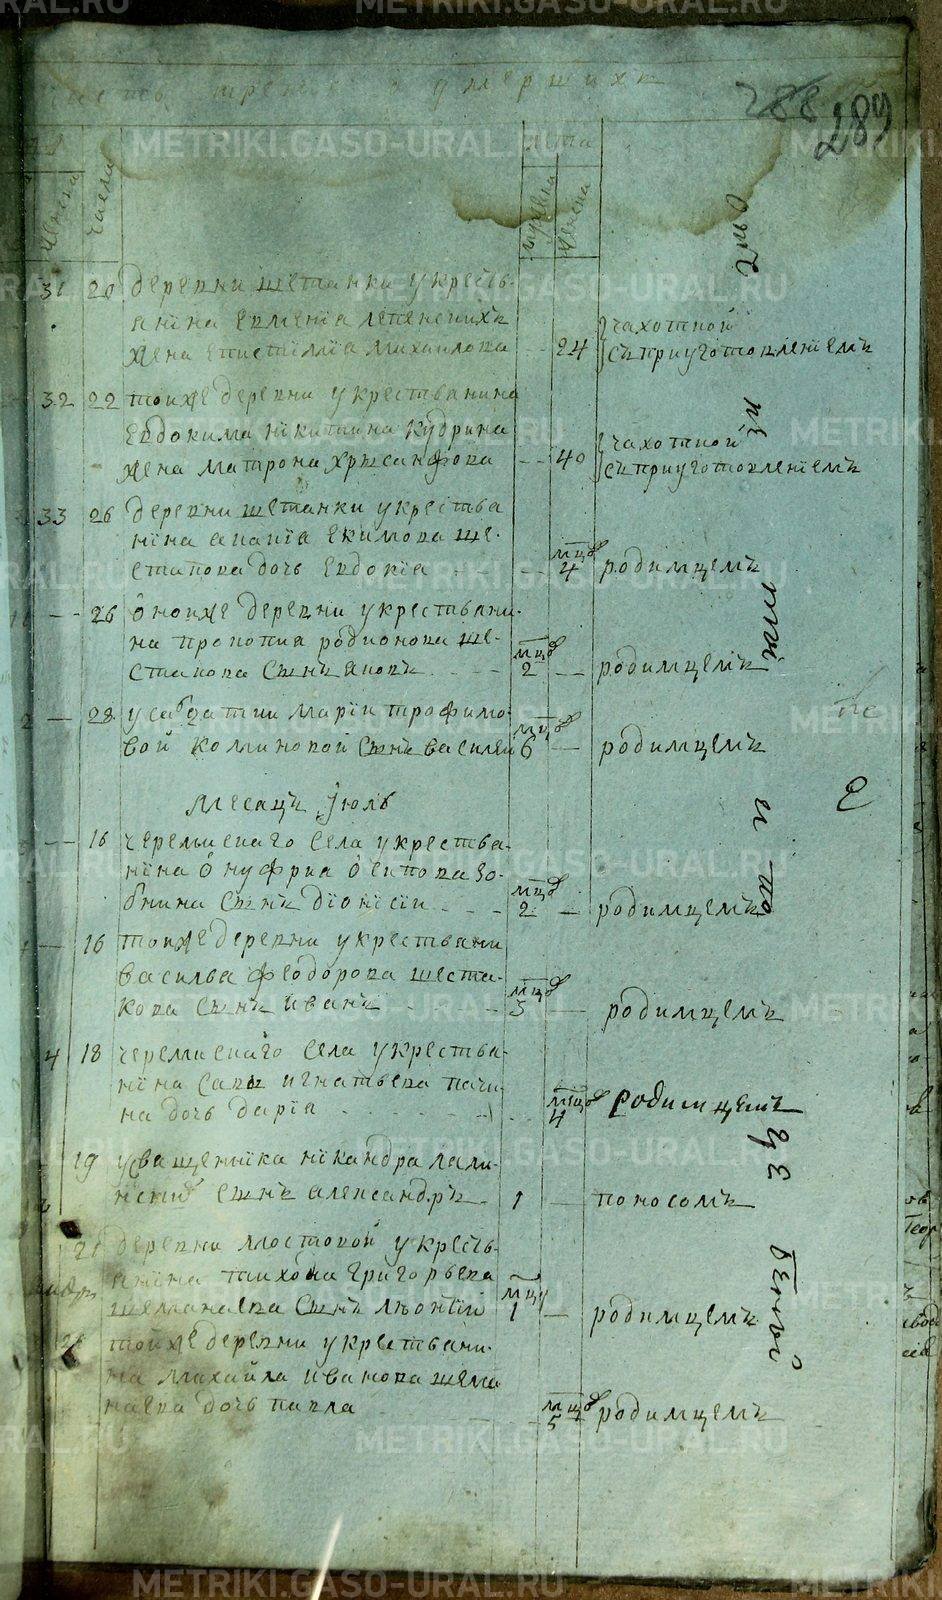 часть третья о умершихъ
288
289
лета
женска
числа
мужеска
женска
31 20 деревни шетанки укресть-
янина Евменіа лепенскихъ
жена епистиміа михаилова 24 чахоткой съ приуготовленіемъ
32 22 тоиже деревни укрестьянина
Евдокима никитина Кудрина
жена матрона хрусанфова 40 чахоткой съ приуготовленіемъ
33 26 деревни шетанки укрестья
нина Екимова ше-
стакова дочь Евдокіа мцов 4 родимцемъ
26 оноиже деревни укрестьяни-
на прокопиа родионова ше-
стакова сынъ Яковъ мцов 2 родимцемъ
28 маріи трофимо-
вой сынъ василей мцов 6 родимцемъ
месацъ Июль
16 черемискаго села укрестья-
нина онуфриа осипова зо-
бнина сынъ діонісіи мцов 2 родимцемъ
16 тоиже деревни укрестьяни
василья феодорова шеста-
кова сынъ иванъ мцов 5 родимцемъ
4 18 черемискаго села укрестья-
нина савы игнатьева пачи-
на дочь даріа мцов 4 родимцемъ
19 усвященника никандра
сынъ александръ 1 поносомъ
21 деревни мостовой укресть-
янина тихона григорьева
шеманаева сынъ леонтій мцу 1 родимцемъ
тоиже деревни укрестьяни-
на михайла иванова шема
наева дочь павла мцов 5 родимцемъ